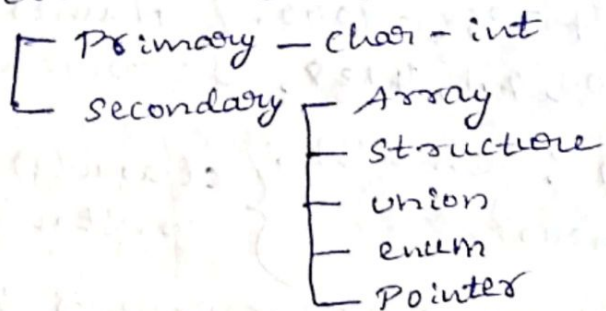 Primary - char - int
secondary - Array
structure
union
enum
Pointer